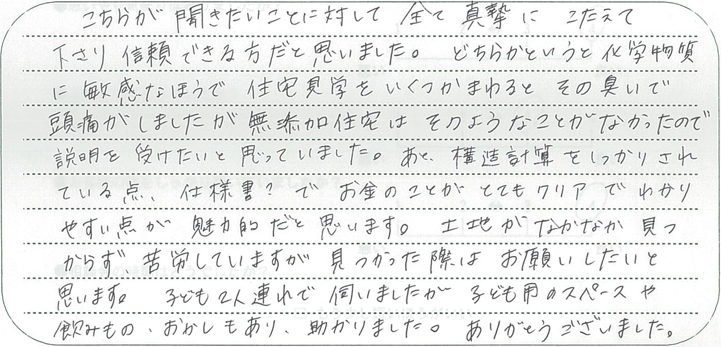 こちらが聞きたいことに対して全て真摯にこたえて
下さり信頼できる方だと思いました。どちらかというと化学物質
に敏感なほうで住宅見学をいくつかまわるとその臭いで
頭痛がしましたが無添加住宅はそのようなことがなかったので
説明を受けたいと思っていました。あと、構造計算をしっかりされ
ている点、仕様書?でお金のことがとてもクリアでわかり
やすい点が魅力的だと思います。土地がなかなか見つ
からず、苦労していますが見つかった際はお願いしたいと
思います。子ども2人連れで伺いましたが子ども用のスペースや
飲みもの、おかしもあり、助かりました。ありがとうございました。